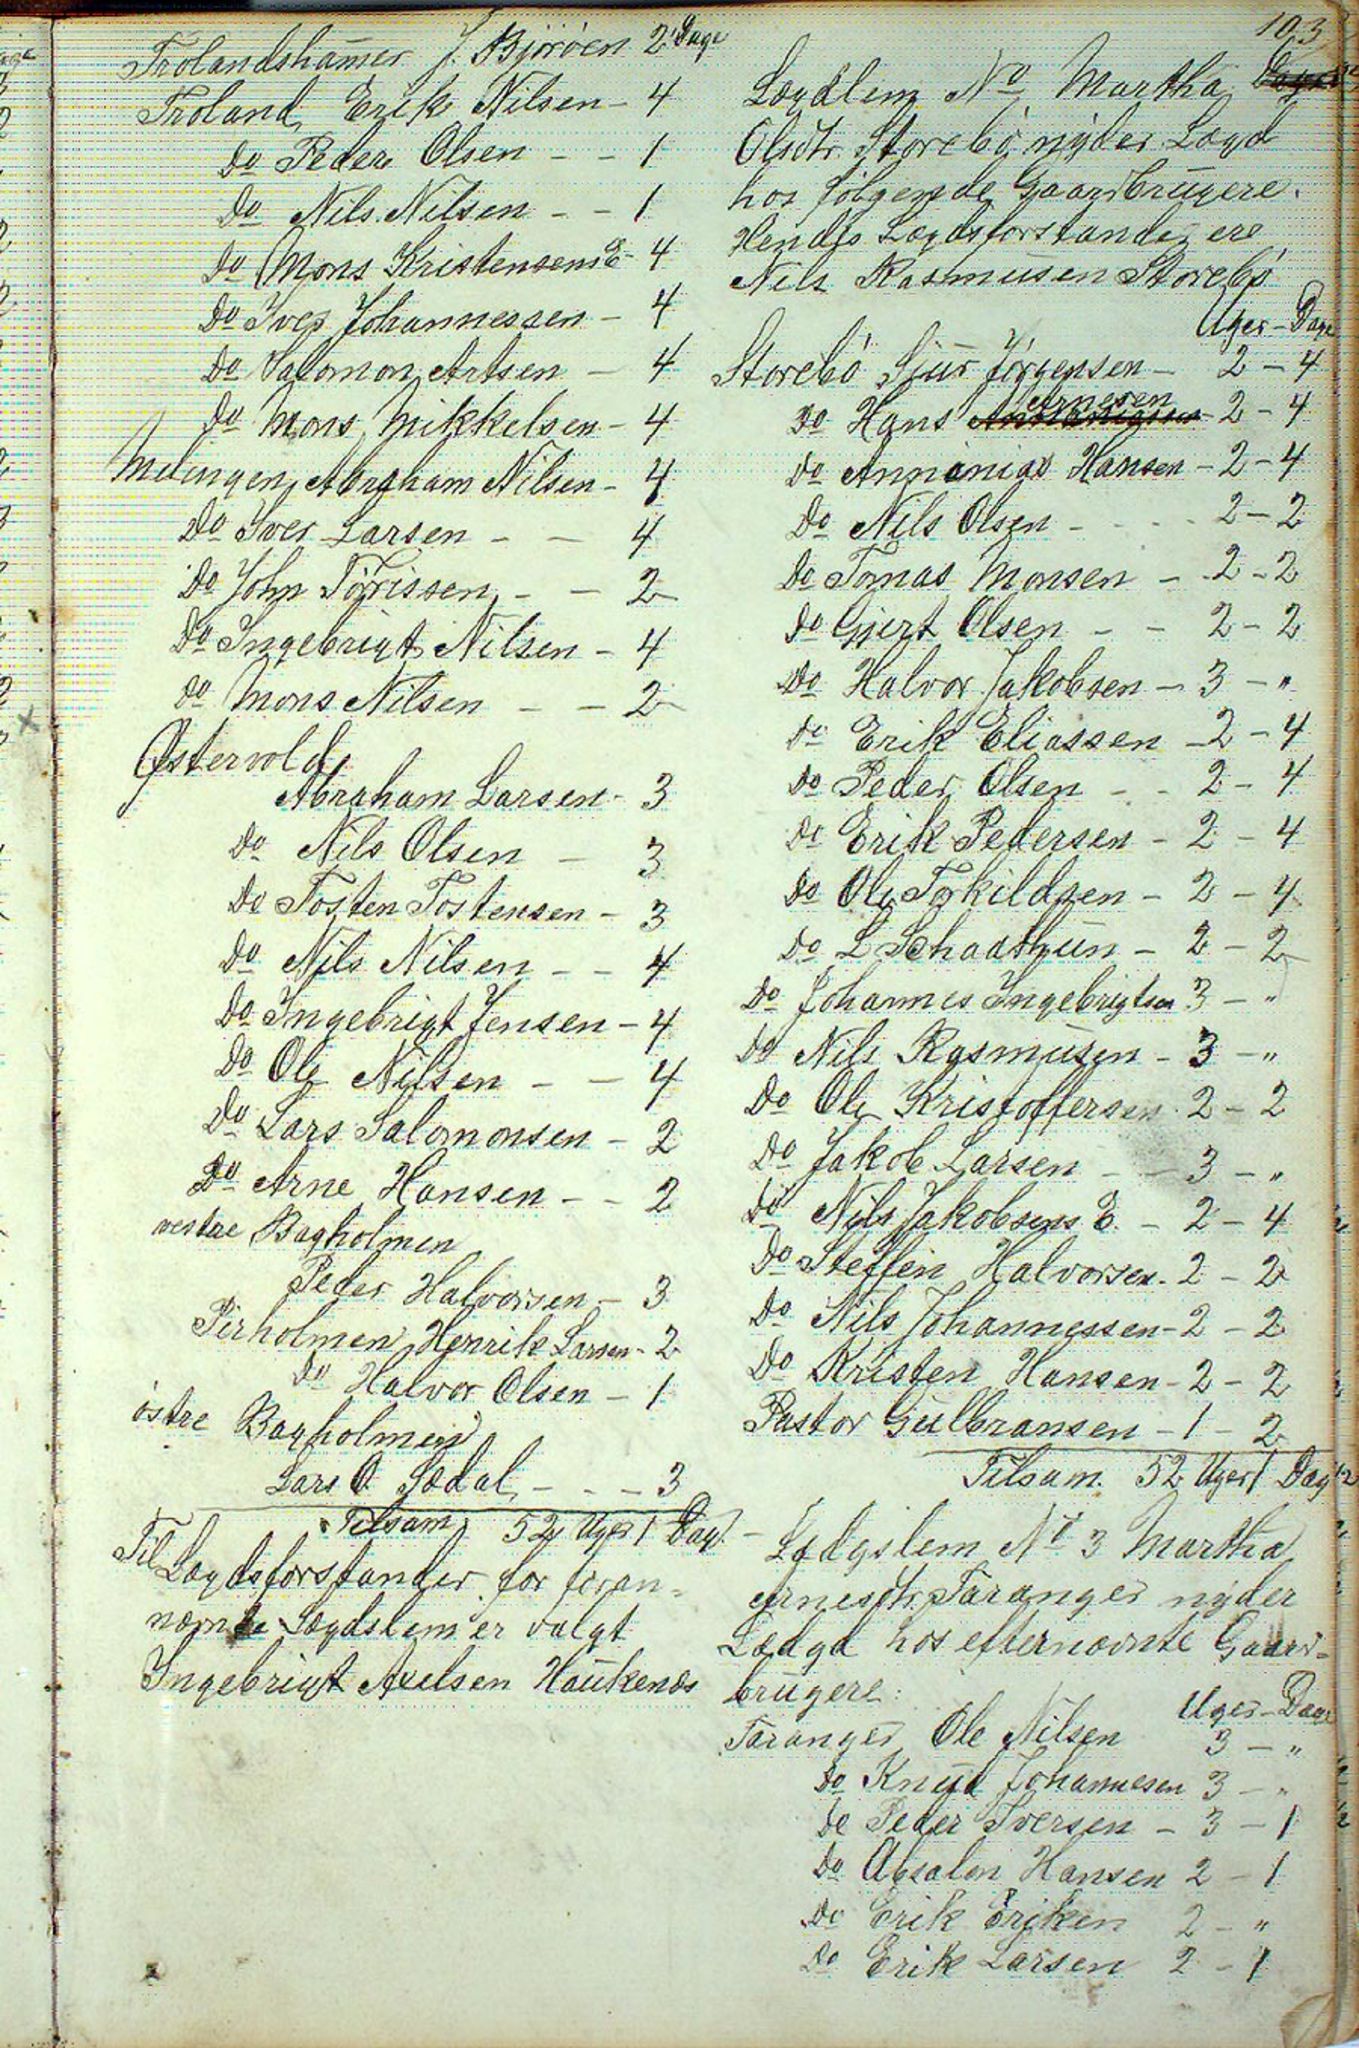 103
Trolandshamer J. Björöen 2 Dage
Troland Erik Nilsen - 4
Do Peder Olsen - - 1
Do Nils Nilsen - - 1
Do Mons Kristensens E - 4
Do Iver Johannessen - 4
Do Salomon Artsen - 4
Do Mons Mikkelsen - 4
Melingen, Abraham Nilsen - 4
Do Iver Larsen - - 4
Do John Törrissen - - 2
Do Ingebrigt Nilsen - 4
Do Mons Nilsen - - 2
Østervold
Abraham Larsen - 3
Do Nils Olsen - 3
Do Tosten Tostensen - 3
Do Nils Nilsen - - 4
Do Ingebrigt Jensen - 4
Do Ole Nilsen - - 4
Do Lars Salomonsen - 2
Do Arne Hansen - - 2
vestre Bagholmen
Peder Halvorsen - 3
Pirholmen Henrik Larsen - 2
Do Halvor Olsen - 1
östre Bagholmen
Lars O. Sædal - - - 3
Tilsam 52 Uger 1 Dag.
Til Lægdsforstander for foran-
nævnte Lægdslem er valgt
Ingebrigt Axelsen Haukenæs
Lægdlem No Martha
Olsdtr. Storebö nyder Lægd
hos fölgende Gaardbrugere.
Hendes Lægdsforstander ere
Nils Rasmussen Storebö
Uger - Dage
Storebö Sjur Jörgensen - 2 - 4
Do Hans Arnesen - 2 - 4
Do Annanias Hansen - 2 - 4
Do Nils Olsen - - - - 2 - 2
Do Tomas Monsen - - 2 - 2
Do Gjert Olsen - - 2 - 2
Do Halvor Jakobsen - 3 - "
Do Erik Eliassen - 2 - 4
Do Peder Olsen - - 2 - 4
Do Erik Pedersen - 2 - 4
Do Ole Torkildsen - 2 - 4
Do L Schaathun - 2 - 2
Do Johannes Ingebrigtsen 3 - "
Do Nils Rasmusen - 3 - "
Do Ole Kristoffersen - 2 - 2
Do Jakob Larsen - - 3 - "
Do Nils Jakobsens E. - 2 - 4
Do Steffen Halvorsen - 2 - 2
Do Nils Johannessen - 2 - 2
Do Kristen Hansen - 2 - 2
Pastor Gulbransen - 1 - 2
Tilsam. 52 Uger 1 Dag
Lædgslem No 3 Martha
Arnesdtr. Taranger nyder
Lædgd hos efternævnte Gaard-
brugere:
Uger - Dage
Taranger Ole Nilsen 3 - "
Do Knud Johannesen 3 - "
Do Peder Iversen - 3 - 1
Do Absalon Hansen 2 - 1
Do Erik Eriken 2 - "
Do Erik Larsen 2 - 1